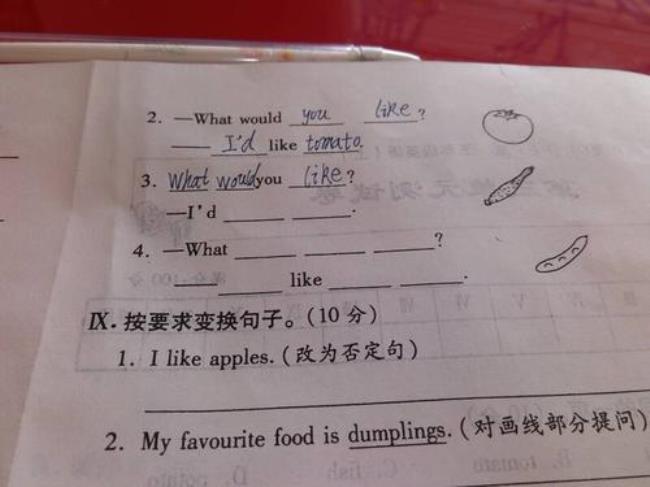 2. —What would you like?
— I'd like tomato.
3. What would you like?
—I'd ______ ______.
4. —What ______ ______ ______?
— ______ like ______ ______.
Ⅸ. 按要求变换句子。(10 分)
1. I like apples. (改为否定句)
2. My favourite food is dumplings. (对画线部分提问)